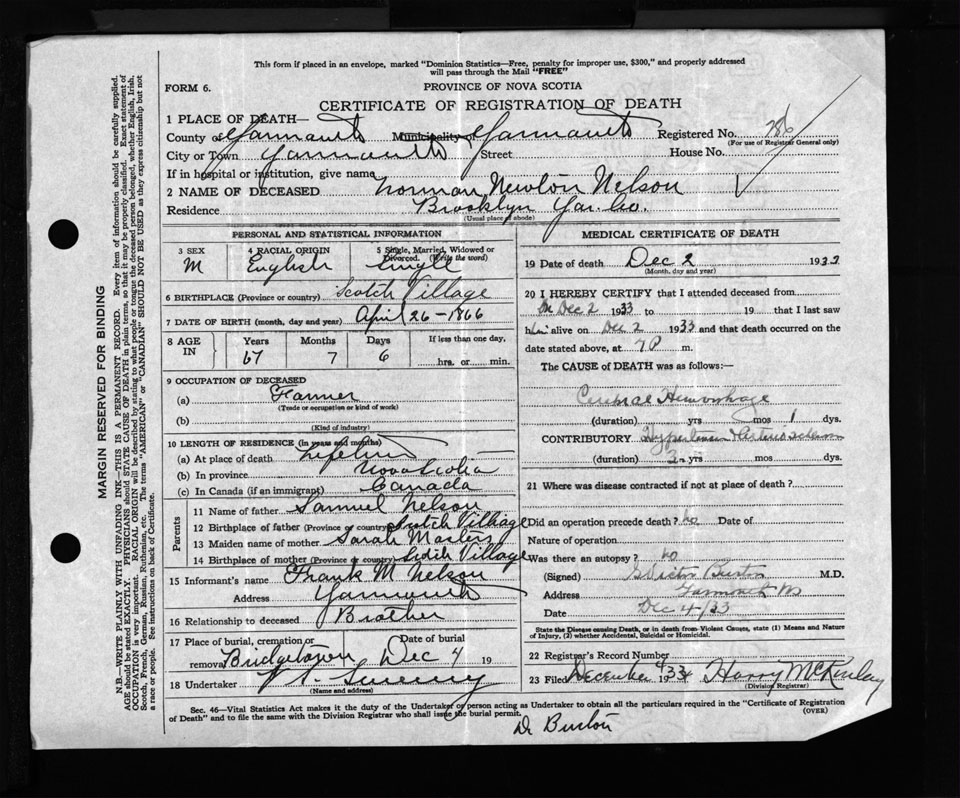 This form if placed in an envelope, marked "Dominion Statistics—Free, penalty for improper use, $300," and properly addressed
will pass through the Mail "FREE"
FORM 6.
PROVINCE OF NOVA SCOTIA
CERTIFICATE OF REGISTRATION OF DEATH
1 PLACE OF DEATH—
County of Yarmouth Municipality of Yarmouth Registered No. 786
(For use of Registrar General only)
City or Town Yarmouth Street House No.
If in hospital or institution, give name
2 NAME OF DECEASED Norman Newton Nelson
Residence Brooklyn Yar. Co.
(Usual place of abode)
PERSONAL AND STATISTICAL INFORMATION
3 SEX M
4 RACIAL ORIGIN English
5 Single, Married, Widowed or Divorced. (Write the word) Single
6 BIRTHPLACE (Province or country) Scotch Village
7 DATE OF BIRTH (month, day and year) April 26 - 1866
8 AGE IN Years Months Days If less than one day,
67 7 6 hrs. or min.
9 OCCUPATION OF DECEASED
(a) Farmer
(Trade or occupation or kind of work)
(b)
(Kind of industry)
10 LENGTH OF RESIDENCE (in years and months)
(a) At place of death Lifetime
(b) In province Nova Scotia
(c) In Canada (if an immigrant) Canada
Parents
11 Name of father Samuel Nelson
12 Birthplace of father (Province or country) Scotch Village
13 Maiden name of mother Sarah Masters
14 Birthplace of mother (Province or country) Scotch Village
15 Informant's name Frank M. Nelson
Address Yarmouth
16 Relationship to deceased Brother
17 Place of burial, cremation or removal Bridgetown Date of burial Dec 4 19
18 Undertaker V. S. Sweeny
(Name and address)
MEDICAL CERTIFICATE OF DEATH
19 Date of death Dec 2 1933
(Month, day and year)
20 I HEREBY CERTIFY that I attended deceased from
On Dec 2 1933 to 19 that I last saw
him alive on Dec 2 1933 and that death occurred on the
date stated above, at 7 P m.
The CAUSE of DEATH was as follows:—
Cerebral Hemorrhage
(duration) yrs mos 1 dys.
CONTRIBUTORY Hypertension
(duration) 2 yrs mos dys.
21 Where was disease contracted if not at place of death?
Did an operation precede death? no Date of
Nature of operation
Was there an autopsy? no
(Signed) M.D.
Address Yarmouth NS
Date Dec 4/33
State the Disease causing Death, or in death from Violent Causes, state (1) Means and Nature
of Injury, (2) whether Accidental, Suicidal or Homicidal.
22 Registrar's Record Number
23 Filed December 4 1933 Harry McKinlay
(Division Registrar)
Sec. 46—Vital Statistics Act makes it the duty of the Undertaker or person acting as Undertaker to obtain all the particulars required in the "Certificate of Registration
of Death" and to file the same with the Division Registrar who shall issue the burial permit. (OVER)
Dr Burton
MARGIN RESERVED FOR BINDING
N.B.—WRITE PLAINLY WITH UNFADING INK—THIS IS A PERMANENT RECORD. Every item of information should be carefully supplied.
AGE should be stated EXACTLY. PHYSICIANS should STATE CAUSE OF DEATH in plain terms, so that it may be properly classified. Exact statement of
OCCUPATION is very important. RACIAL ORIGIN will be described by stating to what people or tongue the deceased person belonged, whether English, Irish,
Scotch, French, German, Russian, Ruthenian, etc. The terms "AMERICAN" or "CANADIAN" SHOULD NOT BE USED as they express citizenship but not
a race or people. See instructions on back of Certificate.